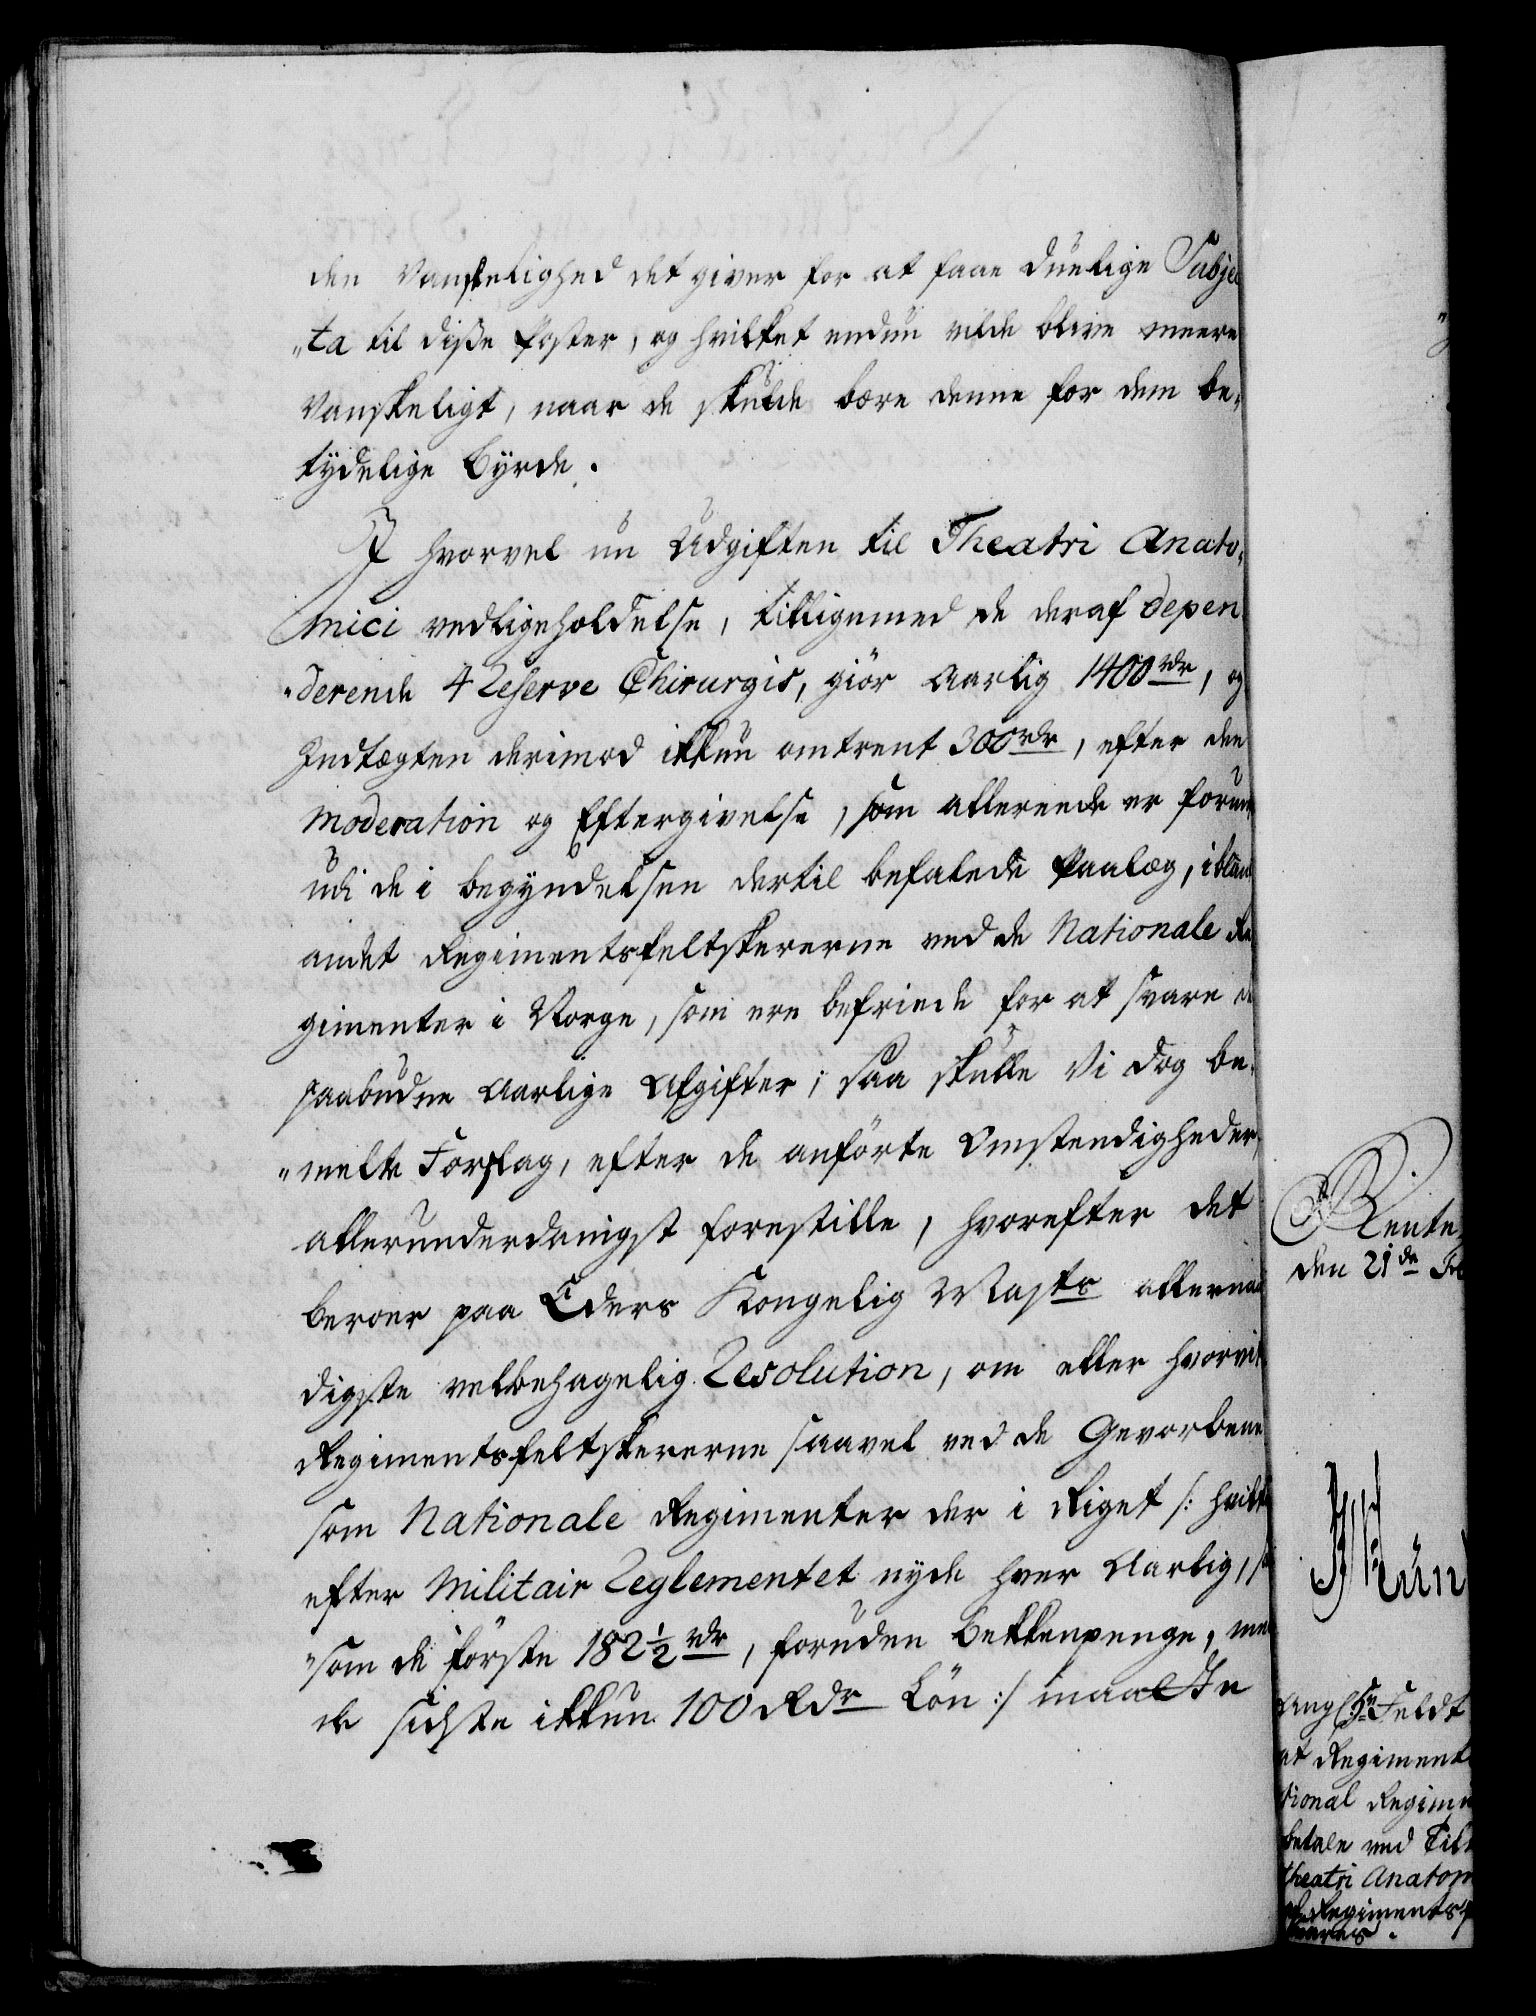 den Vanskelighed det giver for at faae duelige Subjec
„ta til disse Poster, og hvilket endnu vilde blive meere
Vanskeligt, naar de skulde bære denne for dem be„
tydelige Byrde.
I hvorvel nu Udgiften til Theatri Anato„
mici vedligeholdelse, tilligemed de deraf depen
„derende 4 Reserve Chirurgis, giör Aarlig 1400 rdr, og
Indtægten derimod ikkun omtrent 300 rdr, efter den
Moderation og Eftergivelse, som allereede er
udi de i begyndelsen dertil befalede Paalæg, iblandt
andet Regimentsfeltskererne ved de Nationale Re
gimenter i Norge, som ere befriede for at svare de
paabudne Aarlige Afgifter; saa skulle Vi dog be„
„melte Forslag, efter de anförte Omstendigheder,
allerunderdanigst forestille, hvorefter det
beroer paa Eders Kongelig Mayts allernaa
digste velbehagelig Resolution, om eller hvorvit
Regimentsfeltskererne saavel ved de Gevorbene
som Nationale Regimenter der i Riget /: hvilke
efter Militair Reglementet nyde hver Aarlig,
„som de förste 182½ rdr, foruden Bekkenpenge, men
de sidste ikkun 100 Rdr Lön :/ maatte
Rente
den 21de Feb
Ang
at Regiment
tional Regim
betale ved
Theatri Anatom
Regiments